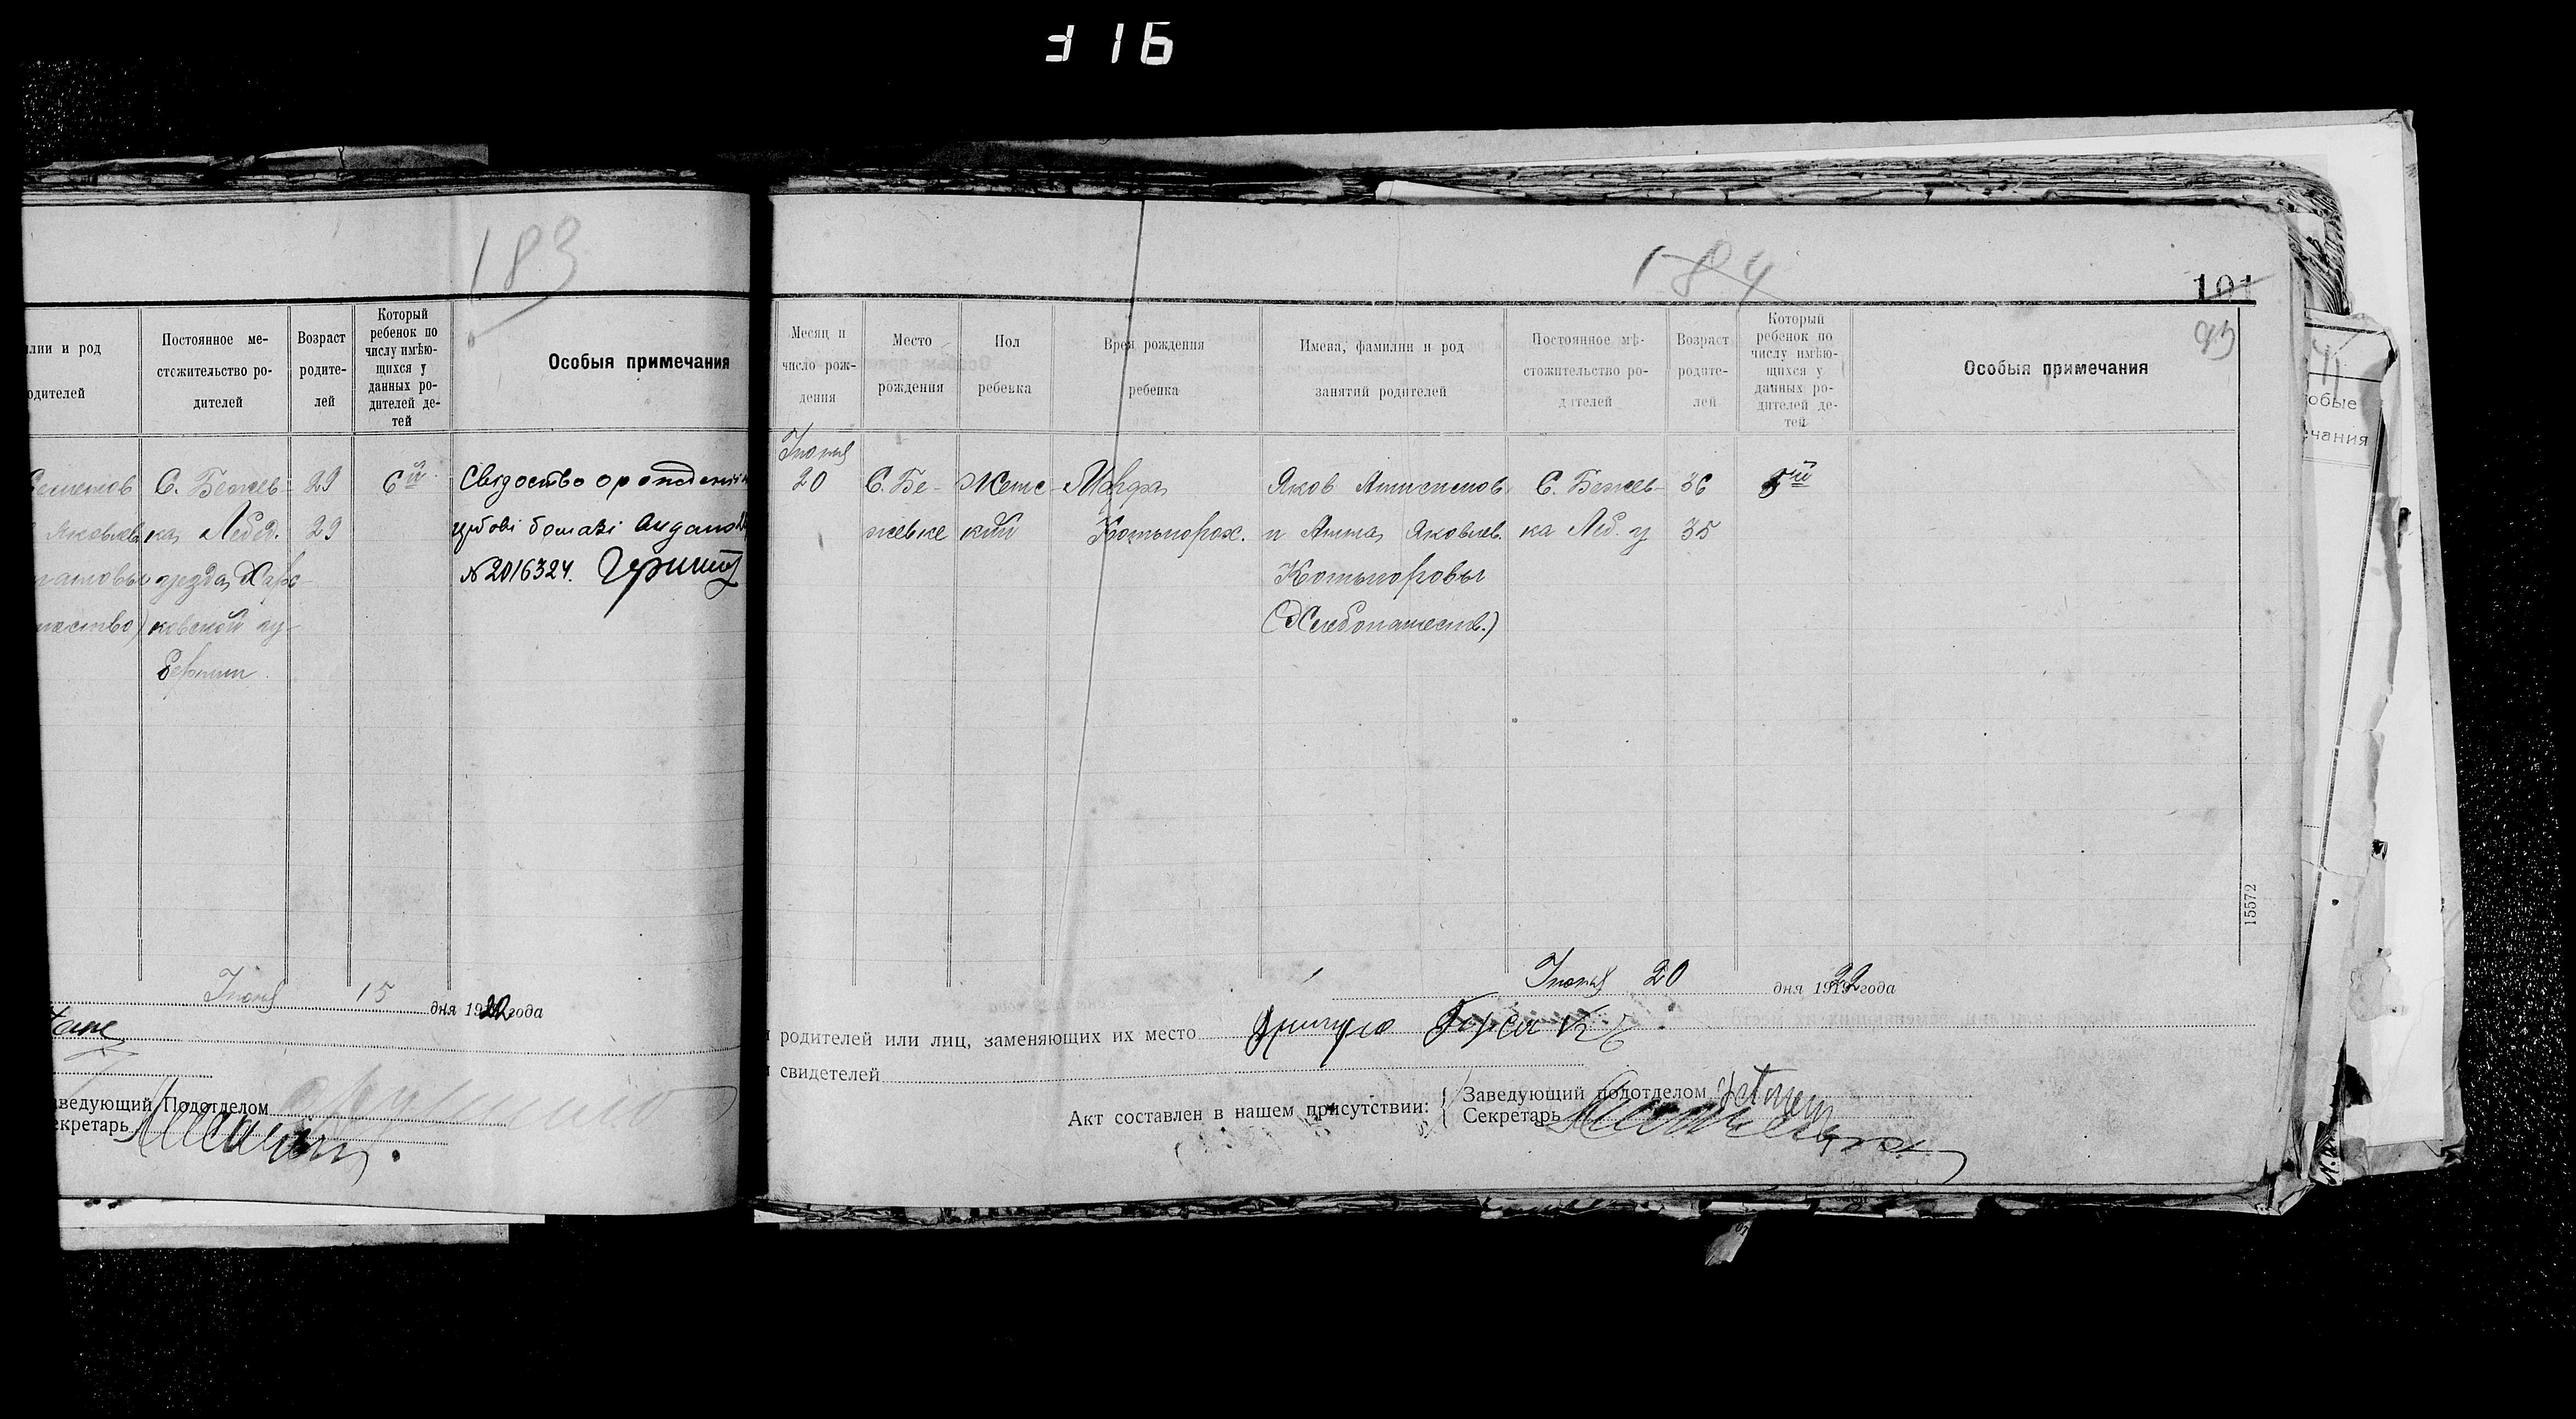 316
183
лии и род
одителей
Постоянное ме-
стожительство ро-
дителей
Возраст
родите-
лей
Который
ребенок по
числу имѣю-
щихся у
данных ро-
дителей де-
тей
Особыя примечания
Семенов
Яковлев
С. Бежев-
ка Лебед.
уезда Харь-
ковской гу-
бернии
29
29
6й
Свідоство о рожденіи
№ 2016324.
Июня 15 дня 1922 года
аведующий Подотделом
екретарь
184
101
93
Месяц и
число рож-
дения
Место
рождения
Пол
ребенка
Время рождения
ребенка
Имена, фамилии и род
занятий родителей
Постоянное мѣ-
стожительство ро-
дителей
Возраст
родите-
лей
Который
ребенок по
числу имѣю-
щихся у
данных ро-
дителей де-
тей
Особыя примечания
Июня
20
С. Бе-
жевке
Женс-
кий
Марфа
Яков
и Анна Яковлев.
(Хлебопашеств.)
С. Бежев-
ка Леб. у
36
35
5й
15572
Июня 20 дня 1922 года
родителей или лиц, заменяющих их место
свидетелей
Акт составлен в нашем присутствии:
Заведующий подотделом
Секретарь
обые
чания